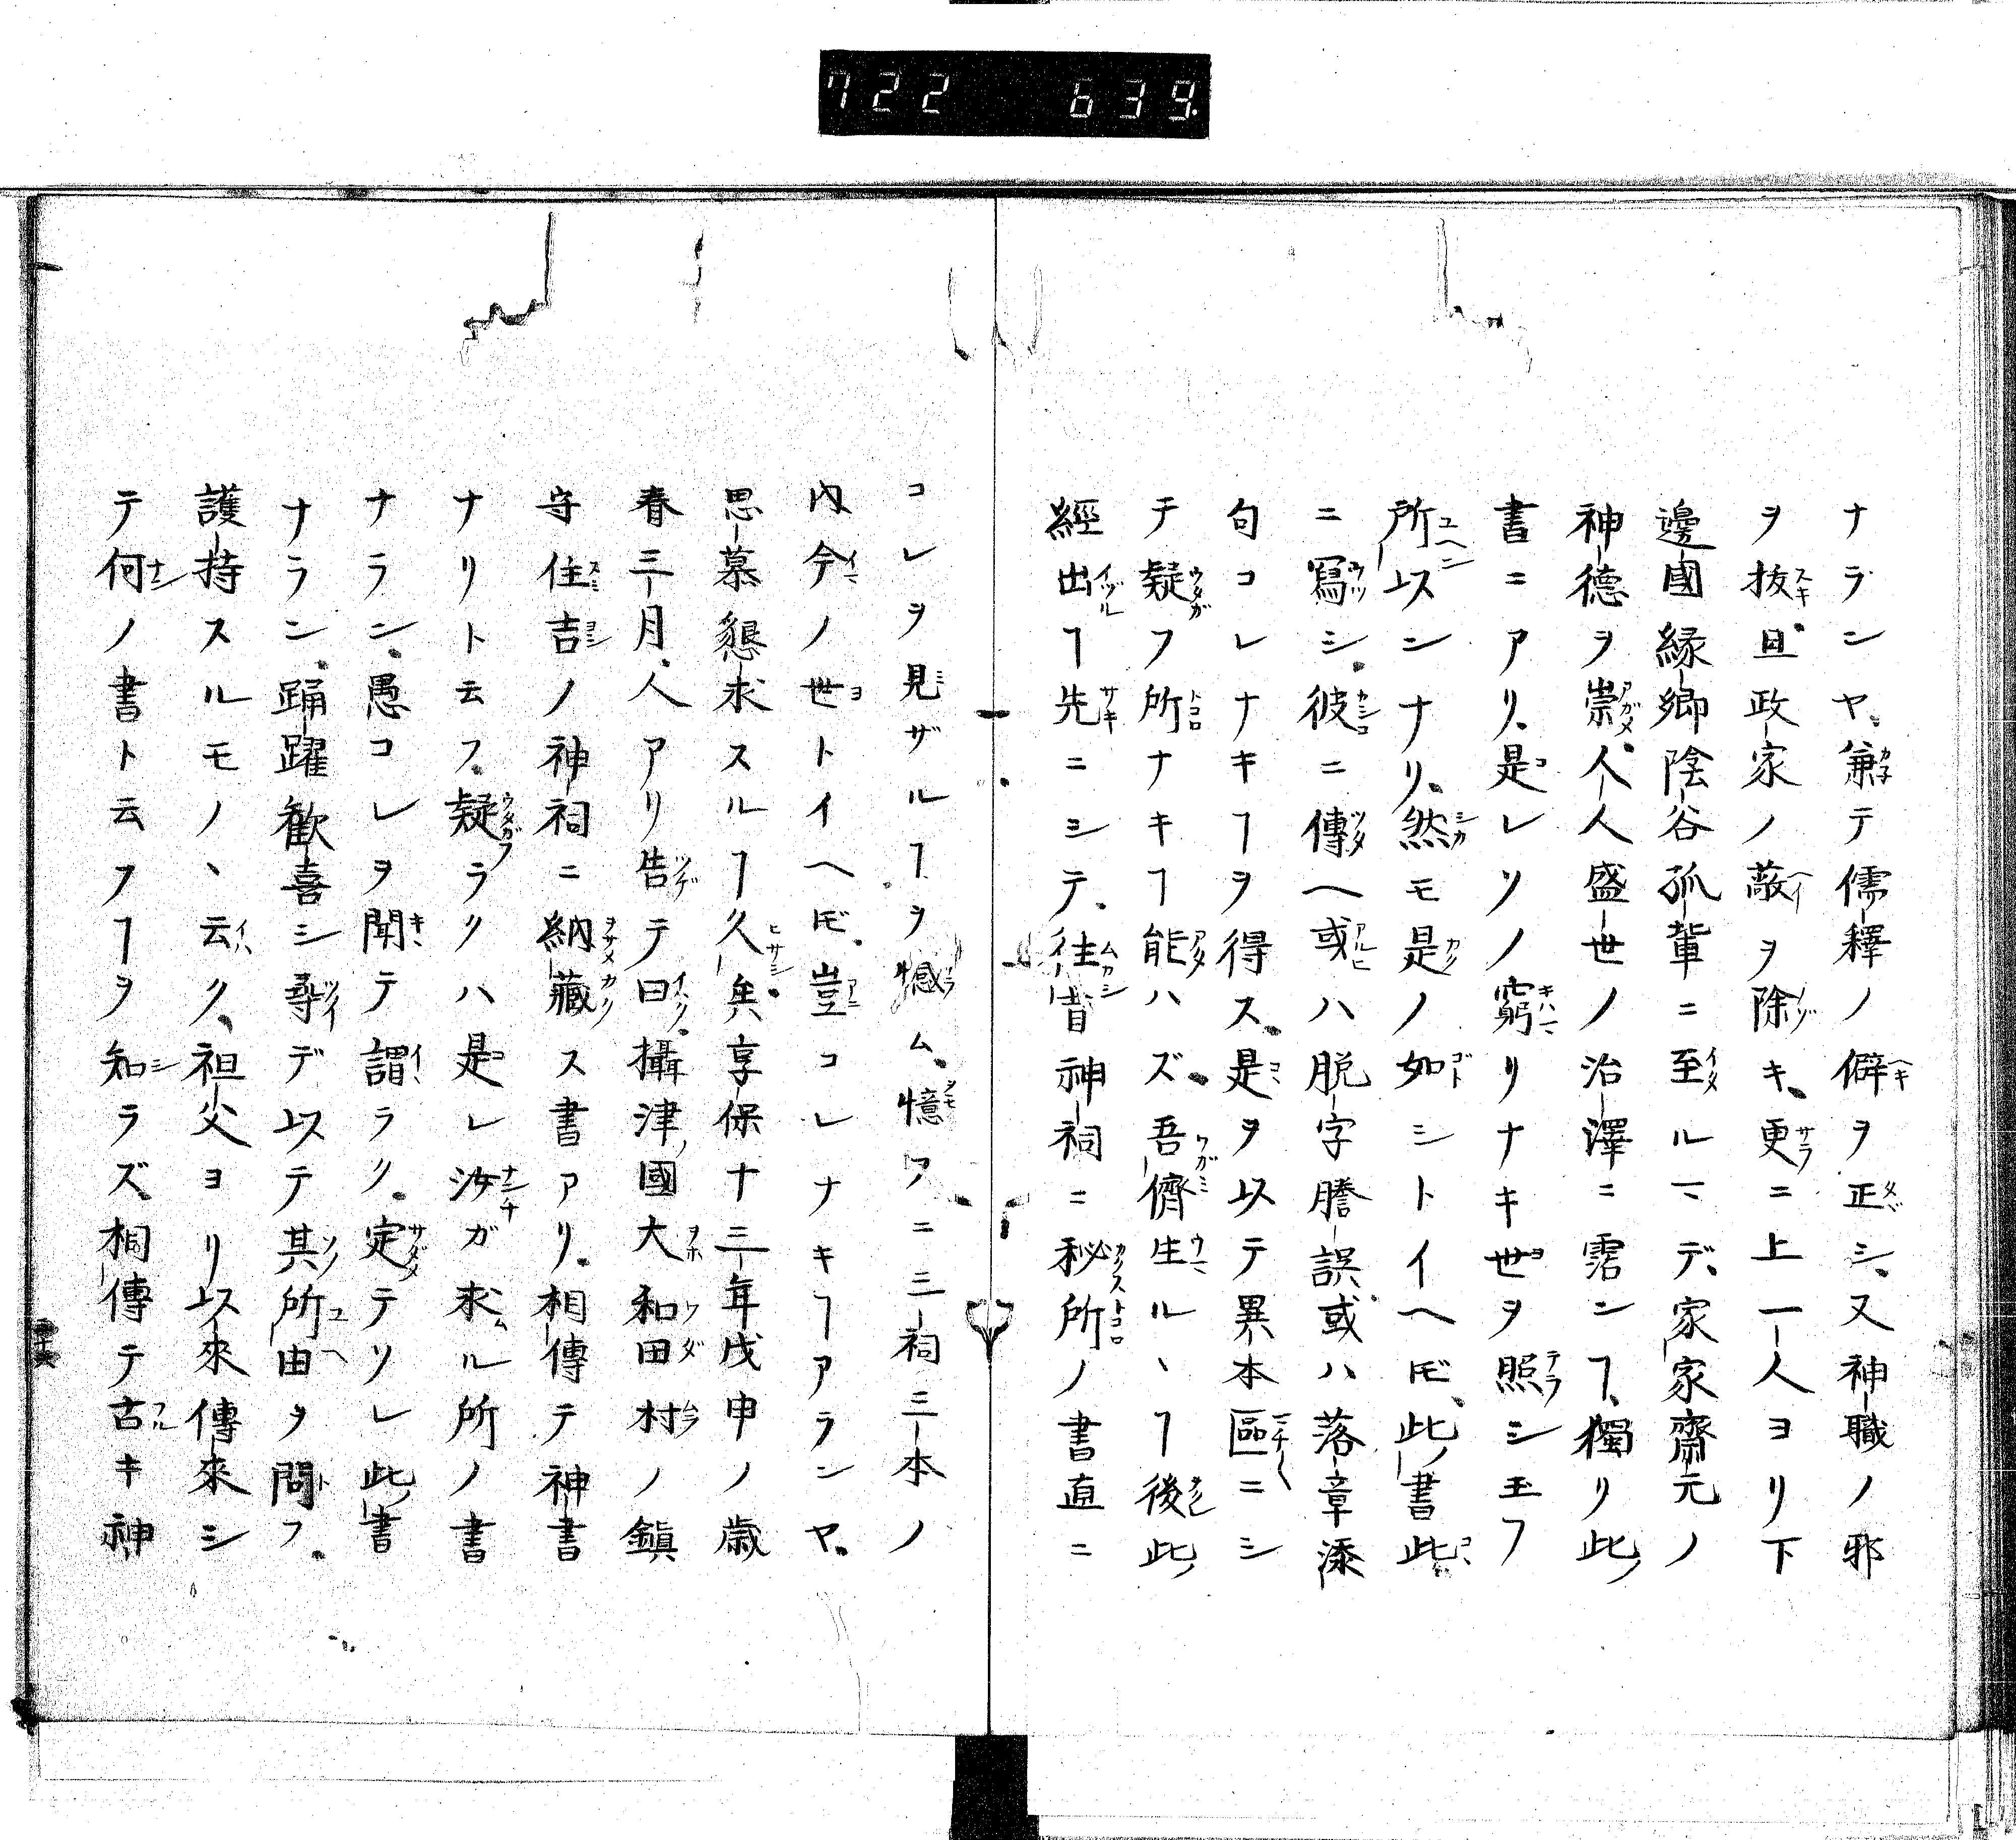 722 639
ナランヤ、兼テ儒釋ノ僻ヲ正シ、又神職ノ邪
ヲ抜、且政家ノ蔽ヲ除キ、更ニ上一人ヨリ下
邊國縁卿陰谷孤輩ニ至ルマデ、家家齋元ノ
神德ヲ崇、人人盛世ノ治澤ニ霑ンヿ、獨リ此
書ニアリ、是レソノ窮リナキ世ヲ照シ玉フ
所以ンナリ、然モ是ノ如シトイヘ𪜈、此書此
ニ寫シ、彼ニ傳ヘ或ハ脱字謄誤、或ハ落章添
句コレナキヿヲ得ス、是ヲ以テ異本區ニシ
テ疑フ所ナキヿ能ハズ、吾儕生ルヽヿ後此
經出ヿ先ニシテ、往昔神祠ニ秘所ノ書直ニ
コレヲ見ザルヿヲ憾ム、憶フニ三祠三本ノ
内今ノ世トイヘ𪜈、豈コレナキヿアランヤ、
思慕懇求スルヿ久矣、享保十三年戊申ノ歳
春三月、人アリ告テ曰、攝津國大和田村ノ鎭
守住吉ノ神祠ニ納藏ス書アリ、相傳テ神書
ナリト云フ、疑ラクハ是レ汝ガ求ル所ノ書
ナラン、愚コレヲ聞テ謂ラク、定テソレ此書
ナラン、踊躍歡喜シ尋デ以テ其所由ヲ問フ、
護持スルモノヽ云ク、祖父ヨリ以來傳來シ
テ何ノ書ト云フヿヲ知ラズ、相傳テ古キ神